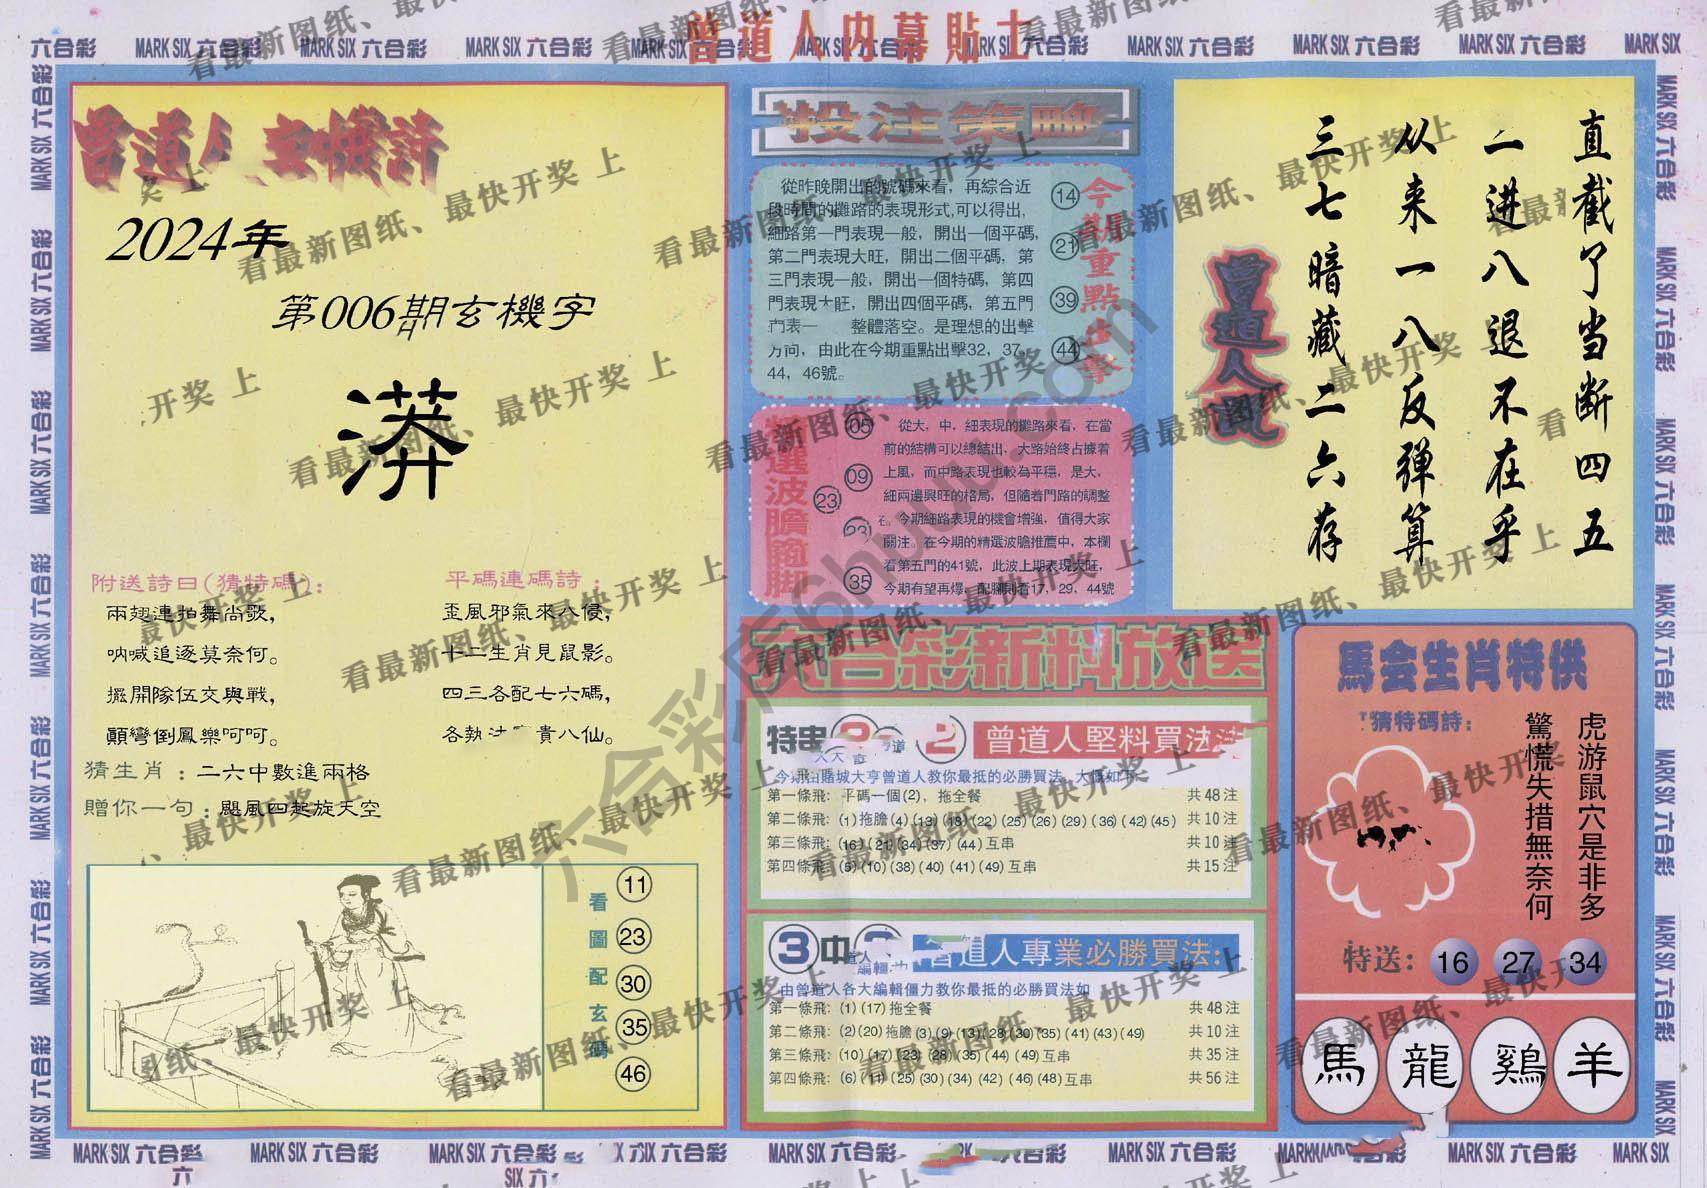 曾道人内幕貼士
六合彩 MARK SIX 六合彩 MARK SIX 六合彩 MARK SIX 六合彩 MARK SIX 六合彩 MARK SIX 六合彩 MARK SIX 六合彩 MARK SIX 六合彩 MARK SIX 六合彩 MARK SIX 六合彩 MARK SIX
曾道人玄機詩
2024年
第006期玄機字
漭
附送詩曰(猜特碼):
兩翅連拍舞尚歌,
吶喊追逐莫奈何。
擺開隊伍交與戰,
顛彎倒鳳樂呵呵。
平碼連碼詩:
歪風邪氣來入侵,
十二生肖見鼠影。
四三各配七六碼,
各執法 貴八仙。
猜生肖:二六中數進兩格
贈你一句:颶風四起旋天空
看圖配玄碼
11
23
30
35
46
投注策略
從昨晚開出的號碼來看，再綜合近
段時間的攤路的表現形式,可以得出,
細路第一門表現一般，開出一個平碼,
第二門表現大旺，開出二個平碼，第
三門表現一般，開出一個特碼，第四
門表現大旺，開出四個平碼，第五門
表一 整體落空。是理想的出擊
方向，由此在今期重點出擊32，37，
44，46號。
今期重點出擊
14
21
39
44
選波膽簡脚
05
09
23
23
35
從大，中，細表現的攤路來看，在當
前的結構可以總結出，大路始終占據着
上風，而中路表現也較為平穩，是大，
細兩邊興旺的格局，但隨着門路的調整
在。今期細路表現的機會增強，值得大家
關注。在今期的精選波膽推薦中，本欄
看第五門的41號，此波上期表現大旺，
今期有望再爆，配腳則看17、29、44號
六合彩新料放送
特串 2 曾道人堅料買法
今期由賭城大亨曾道人教你最抵的必勝買法，大慨如下:
第一條飛: 平碼一個(2)，拖全餐 共48注
第二條飛: (1)拖膽(4)(13)(18)(22)(25)(26)(29)(36)(42)(45) 共10注
第三條飛: (16)(21)(34)(37)(44)互串 共10注
第四條飛: (5)(10)(38)(40)(41)(49)互串 共15注
3中 曾道人專業必勝買法:
由曾道人各大編輯僵力教你最抵的必勝買法如
第一條飛: (1)(17)拖全餐 共48注
第二條飛: (2)(20)拖膽(3)(9)(13)(28)(30)(35)(41)(43)(49) 共10注
第三條飛: (10)(17)(23)(28)(35)(44)(49)互串 共35注
第四條飛: (6)(11)(25)(30)(34)(42)(46)(48)互串 共56注
直截了当断四五
二进八退不在乎
从来一八反弹算
三七暗藏二六存
曾道人
馬会生肖特供
猜特碼詩:
虎游鼠穴是非多
驚慌失措無奈何
特送: 16 27 34
馬 龍 鷄 羊
MARK SIX 六合彩 MARK SIX 六合彩 MARK SIX 六合彩
MARK SIX 六合彩 MARK SIX 六合彩 MARK SIX 六合彩 MARK SIX 六合彩 MARK SIX
看最新图纸、最快开奖 上
六合彩库6huu.com